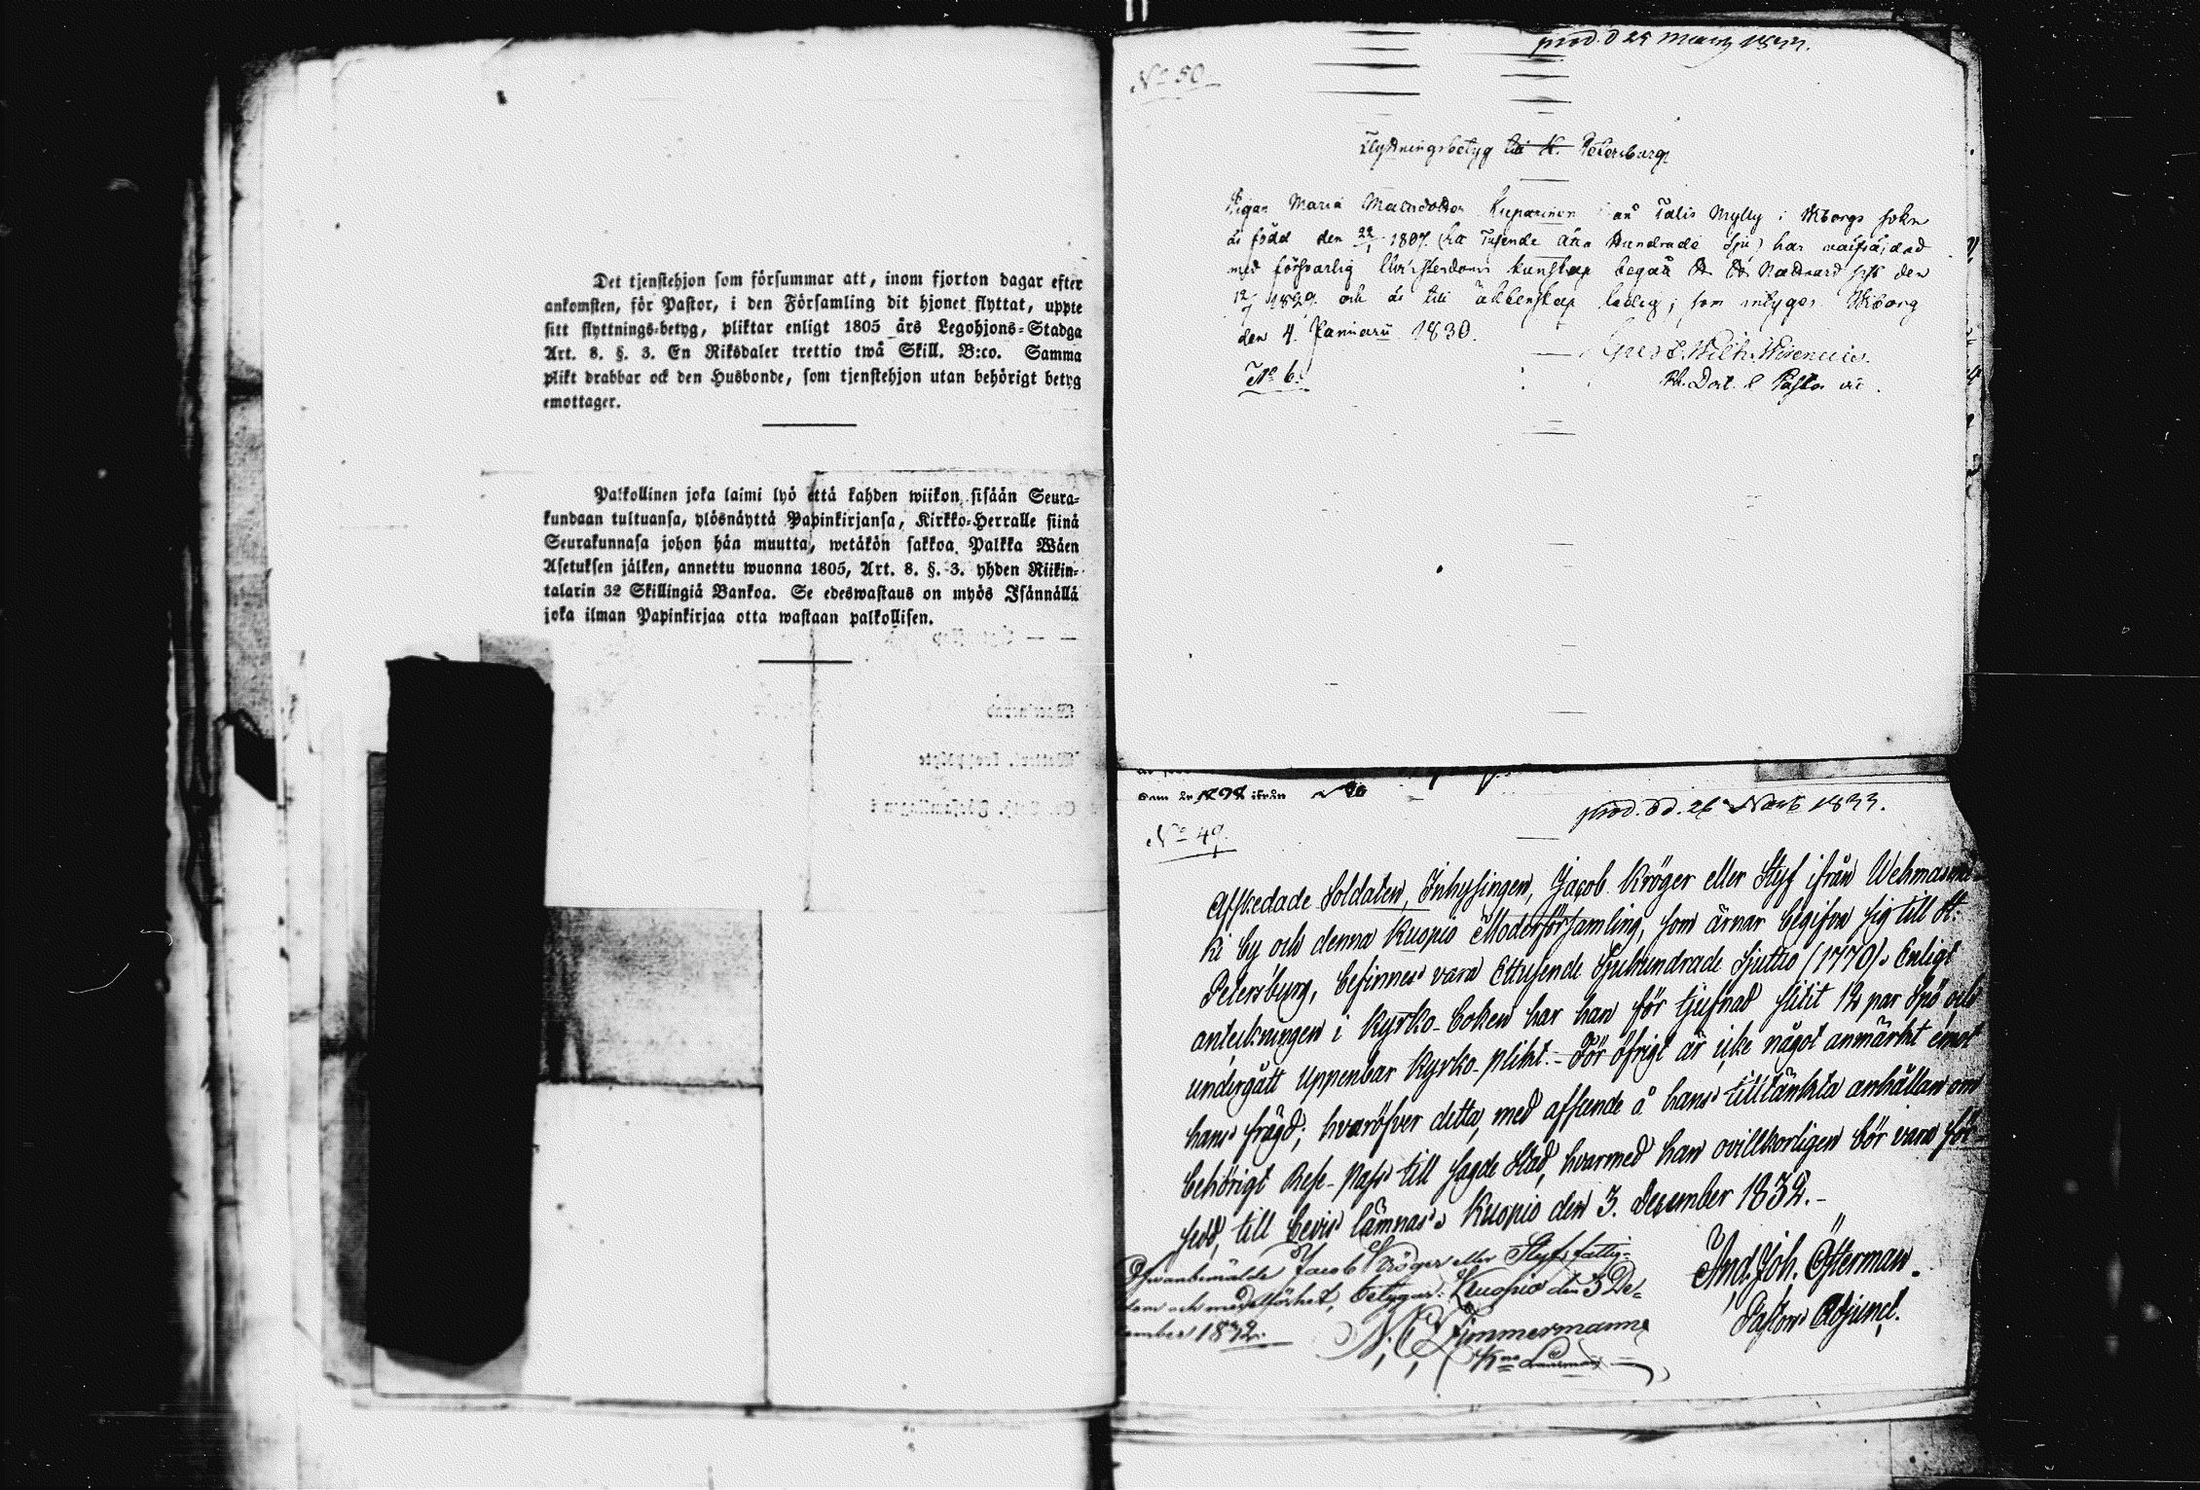 Det tjenstehjon som försummar att, inom fjorton dagar efter
ankomsten, för Pastor, i den Församling dit hjonet flyttat, uppte
sitt flyttnings-betyg, pliktar enligt 1805 års Legohjons-Stadga
Art. 8. §. 3. En Riksdaler trettio twå Skill. B:co. Samma
plikt drabbar ock den Husbonde, som tjenstehjon utan behörigt betyg
emottager.
Palkollinen joka laimi lyö että kahden wiikon sisään Seura-
kundaan tultuansa, ylösnäyttä Papinkirjansa, Kirkko-Herralle siinä
Seurakunnasa johon hän muutta, wetäkön sakkoa Palkka Wäen
Asetuksen jälken, annettu wuonna 1805, Art. 8. §. 3. yhden Riikin-
talarin 32 Skillingiä Bankoa. Se edeswastaus on myös Isännällä
joka ilman Papinkirjaa otta wastaan palkollisen.
prod. d 25 1833.
No 50
Flyttningsbetyg till St. Petersburg
Pigan Maria Kuparinen från Talis Mylly i Wiborgs sokn
är född den 22/1 1807. (Ett Tusende Åtta Hundrade Sju) har
med försvarlig Christendoms kunskap begått H. H. Nattvard sist den
12/7 1829. och är till äktenskap ledig; som intygar Wiborg
den 4. Januarii 1830.
No 6.
Gust. Wilh.
Ph. Doct. & Pastor
1832 ifrån
prod. dd. 26 1833.
No 49.
Afskedade Soldaten, Inhysingen, Jacob Kröger eller Styf ifrån Wehmasmä-
ki by och denna Kuopio Moderförsamling, som ärnar begifva sig till St.
Petersburg, befinnes vara Ettusende Sjuhundrade Sjuttio (1770). Enligt
anteckningen i Kyrko-boken har han för tjufnad slitit 12 par Spö och
undergått Uppenbar Kyrko-plikt. – För öfrigt är icke något anmärkt emot
hans frägd; hvaröfver detta, med afseende å hans tilltänkta anhållan om
behörigt Rese-Pass till sagde Stad, hvarmed han ovillkorligen bör vara för-
sedd, till bevis lämnas. Kuopio den 3. December 1832. –
And. Joh. Österman.
Pastors Adjunct.
Ofvanbemälde Jacob Kröger eller Styfs fattig-
dom och medellöshet, betygar. Kuopio den 3 De-
cember 1832.
N. C. Zimmermann
Länsman